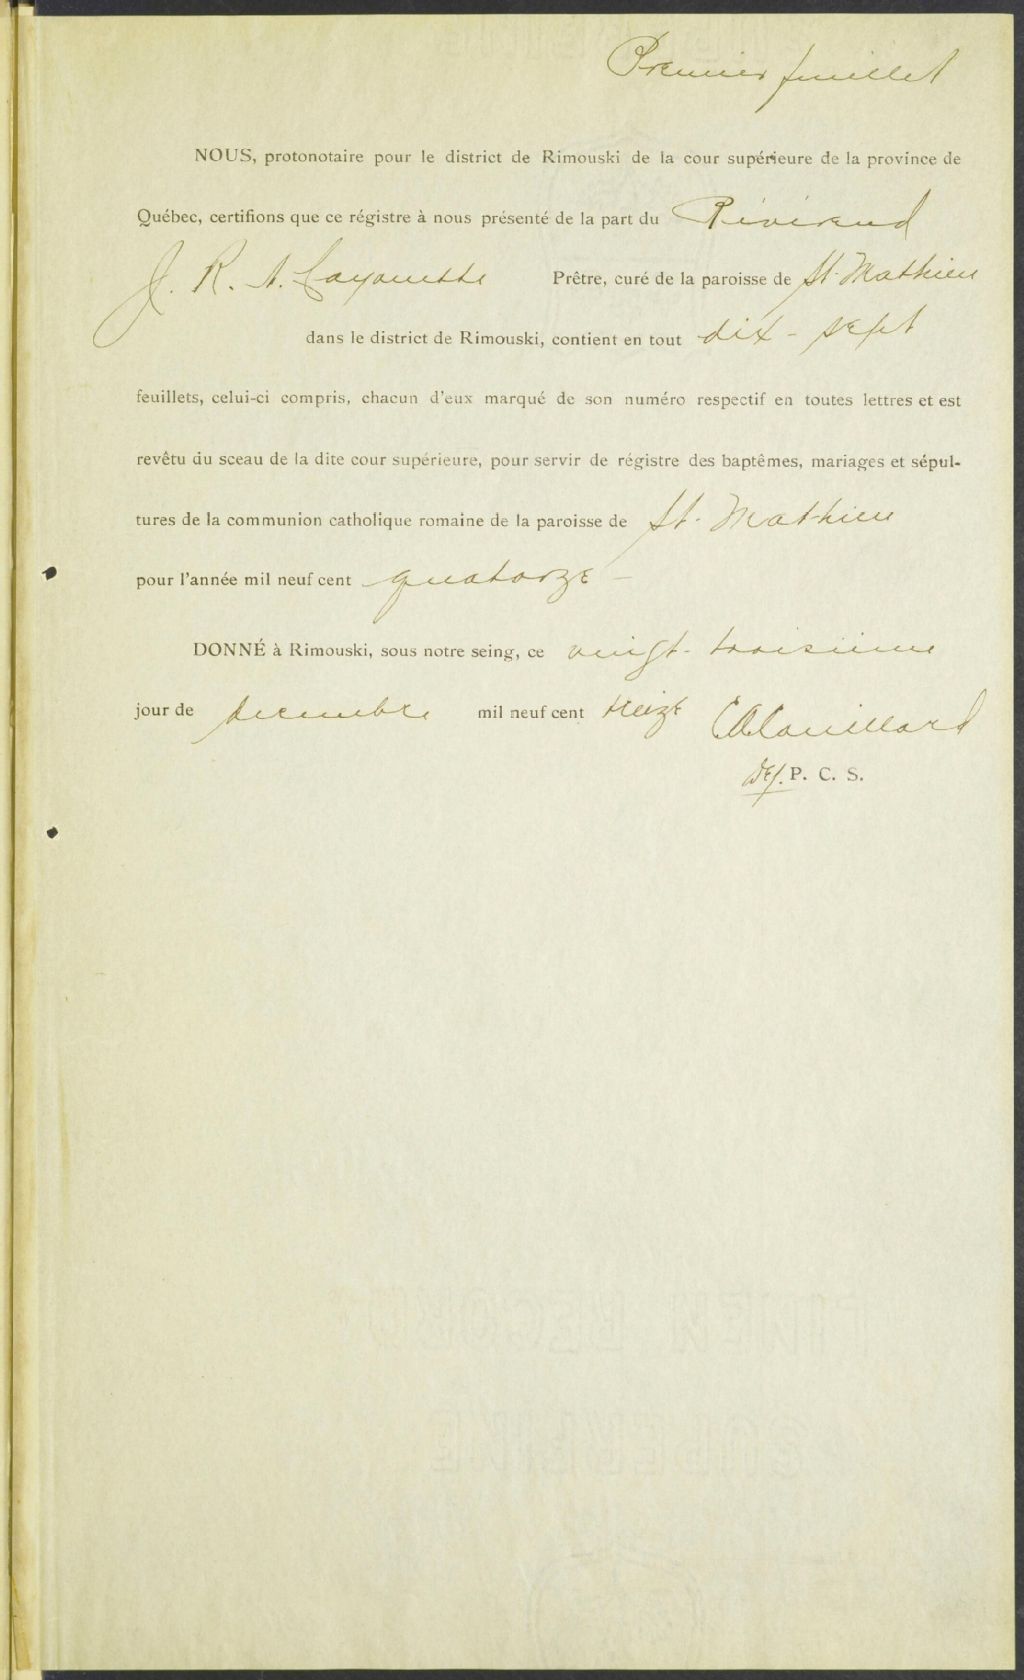 Premier feuillet
NOUS, protonotaire pour le district de Rimouski de la cour supérieure de la province de
Québec, certifions que ce régistre à nous présenté de la part du Révérend
J. R. A. Cayouette Prêtre, curé de la paroisse de St-Mathieu
dans le district de Rimouski, contient en tout dix-sept
feuillets, celui-ci compris, chacun d'eux marqué de son numéro respectif en toutes lettres et est
revêtu du sceau de la dite cour supérieure, pour servir de régistre des baptêmes, mariages et sépul-
tures de la communion catholique romaine de la paroisse de St-Mathieu
pour l'année mil neuf cent quatorze -
DONNÉ à Rimouski, sous notre seing, ce vingt-troisième
jour de decembre mil neuf cent treize Couillard
Dep. P. C. S.
LINEN RECORD